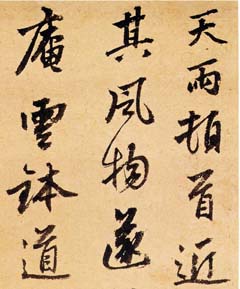 天雨頓首近
其風物遂
庵雲鉢道